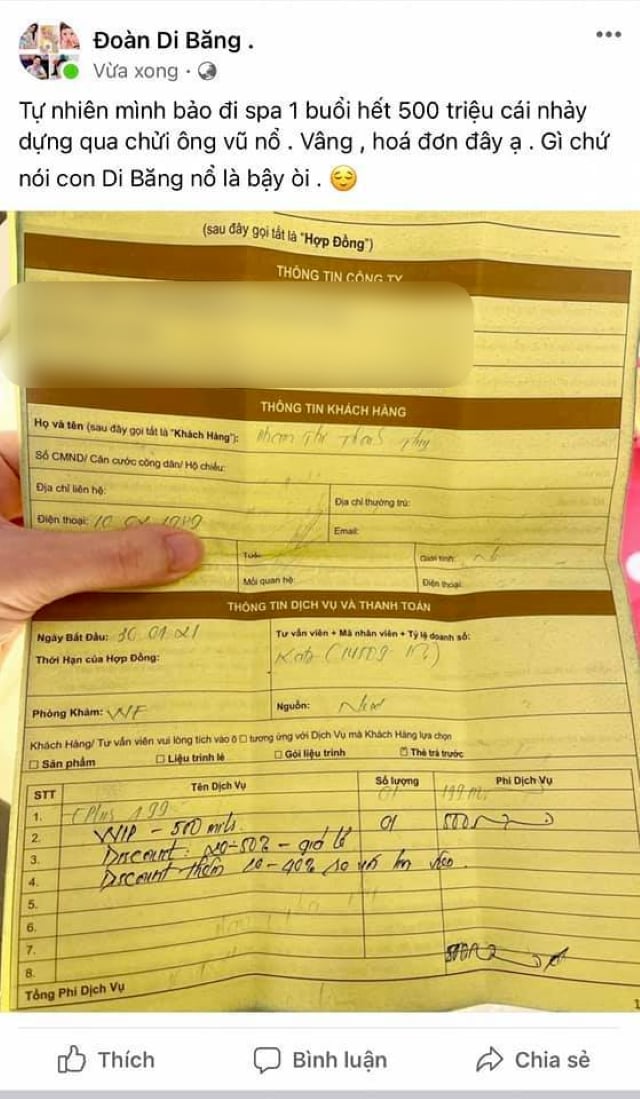 Đoàn Di Băng .
Vừa xong ·
Tự nhiên mình bảo đi spa 1 buổi hết 500 triệu cái nhảy
dựng qua chửi ông vũ nổ . Vâng , hoá đơn đây ạ . Gì chứ
nói con Di Băng nổ là bậy òi . 😌
(sau đây gọi tắt là "Hợp Đồng")
THÔNG TIN CÔNG TY
THÔNG TIN KHÁCH HÀNG
Họ và tên (sau đây gọi tắt là "Khách Hàng"):
Số CMND/ Căn cước công dân/ Hộ chiếu:
Địa chỉ liên hệ:
Địa chỉ thường trú:
Điện thoại:
Email:
Giới tính:
Mối quan hệ:
Điện thoại:
THÔNG TIN DỊCH VỤ VÀ THANH TOÁN
Ngày Bắt Đầu: 30.01.21
Tư vấn viên + Mã nhân viên + Tỷ lệ doanh số:
Thời Hạn của Hợp Đồng:
Phòng Khám: WF
Nguồn:
Khách Hàng/ Tư vấn viên vui lòng tích vào ô □ tương ứng với Dịch Vụ mà Khách Hàng lựa chọn
□ Sản phẩm □ Liệu trình lẻ □ Gói liệu trình □ Thẻ trả trước
STT Tên Dịch Vụ Số lượng Phí Dịch Vụ
1.
2. VVIP - 500 01
3. Discount: 20-50% - giá lẻ
4. Discount thêm
5.
6.
7.
8.
Tổng Phí Dịch Vụ
1
Thích Bình luận Chia sẻ